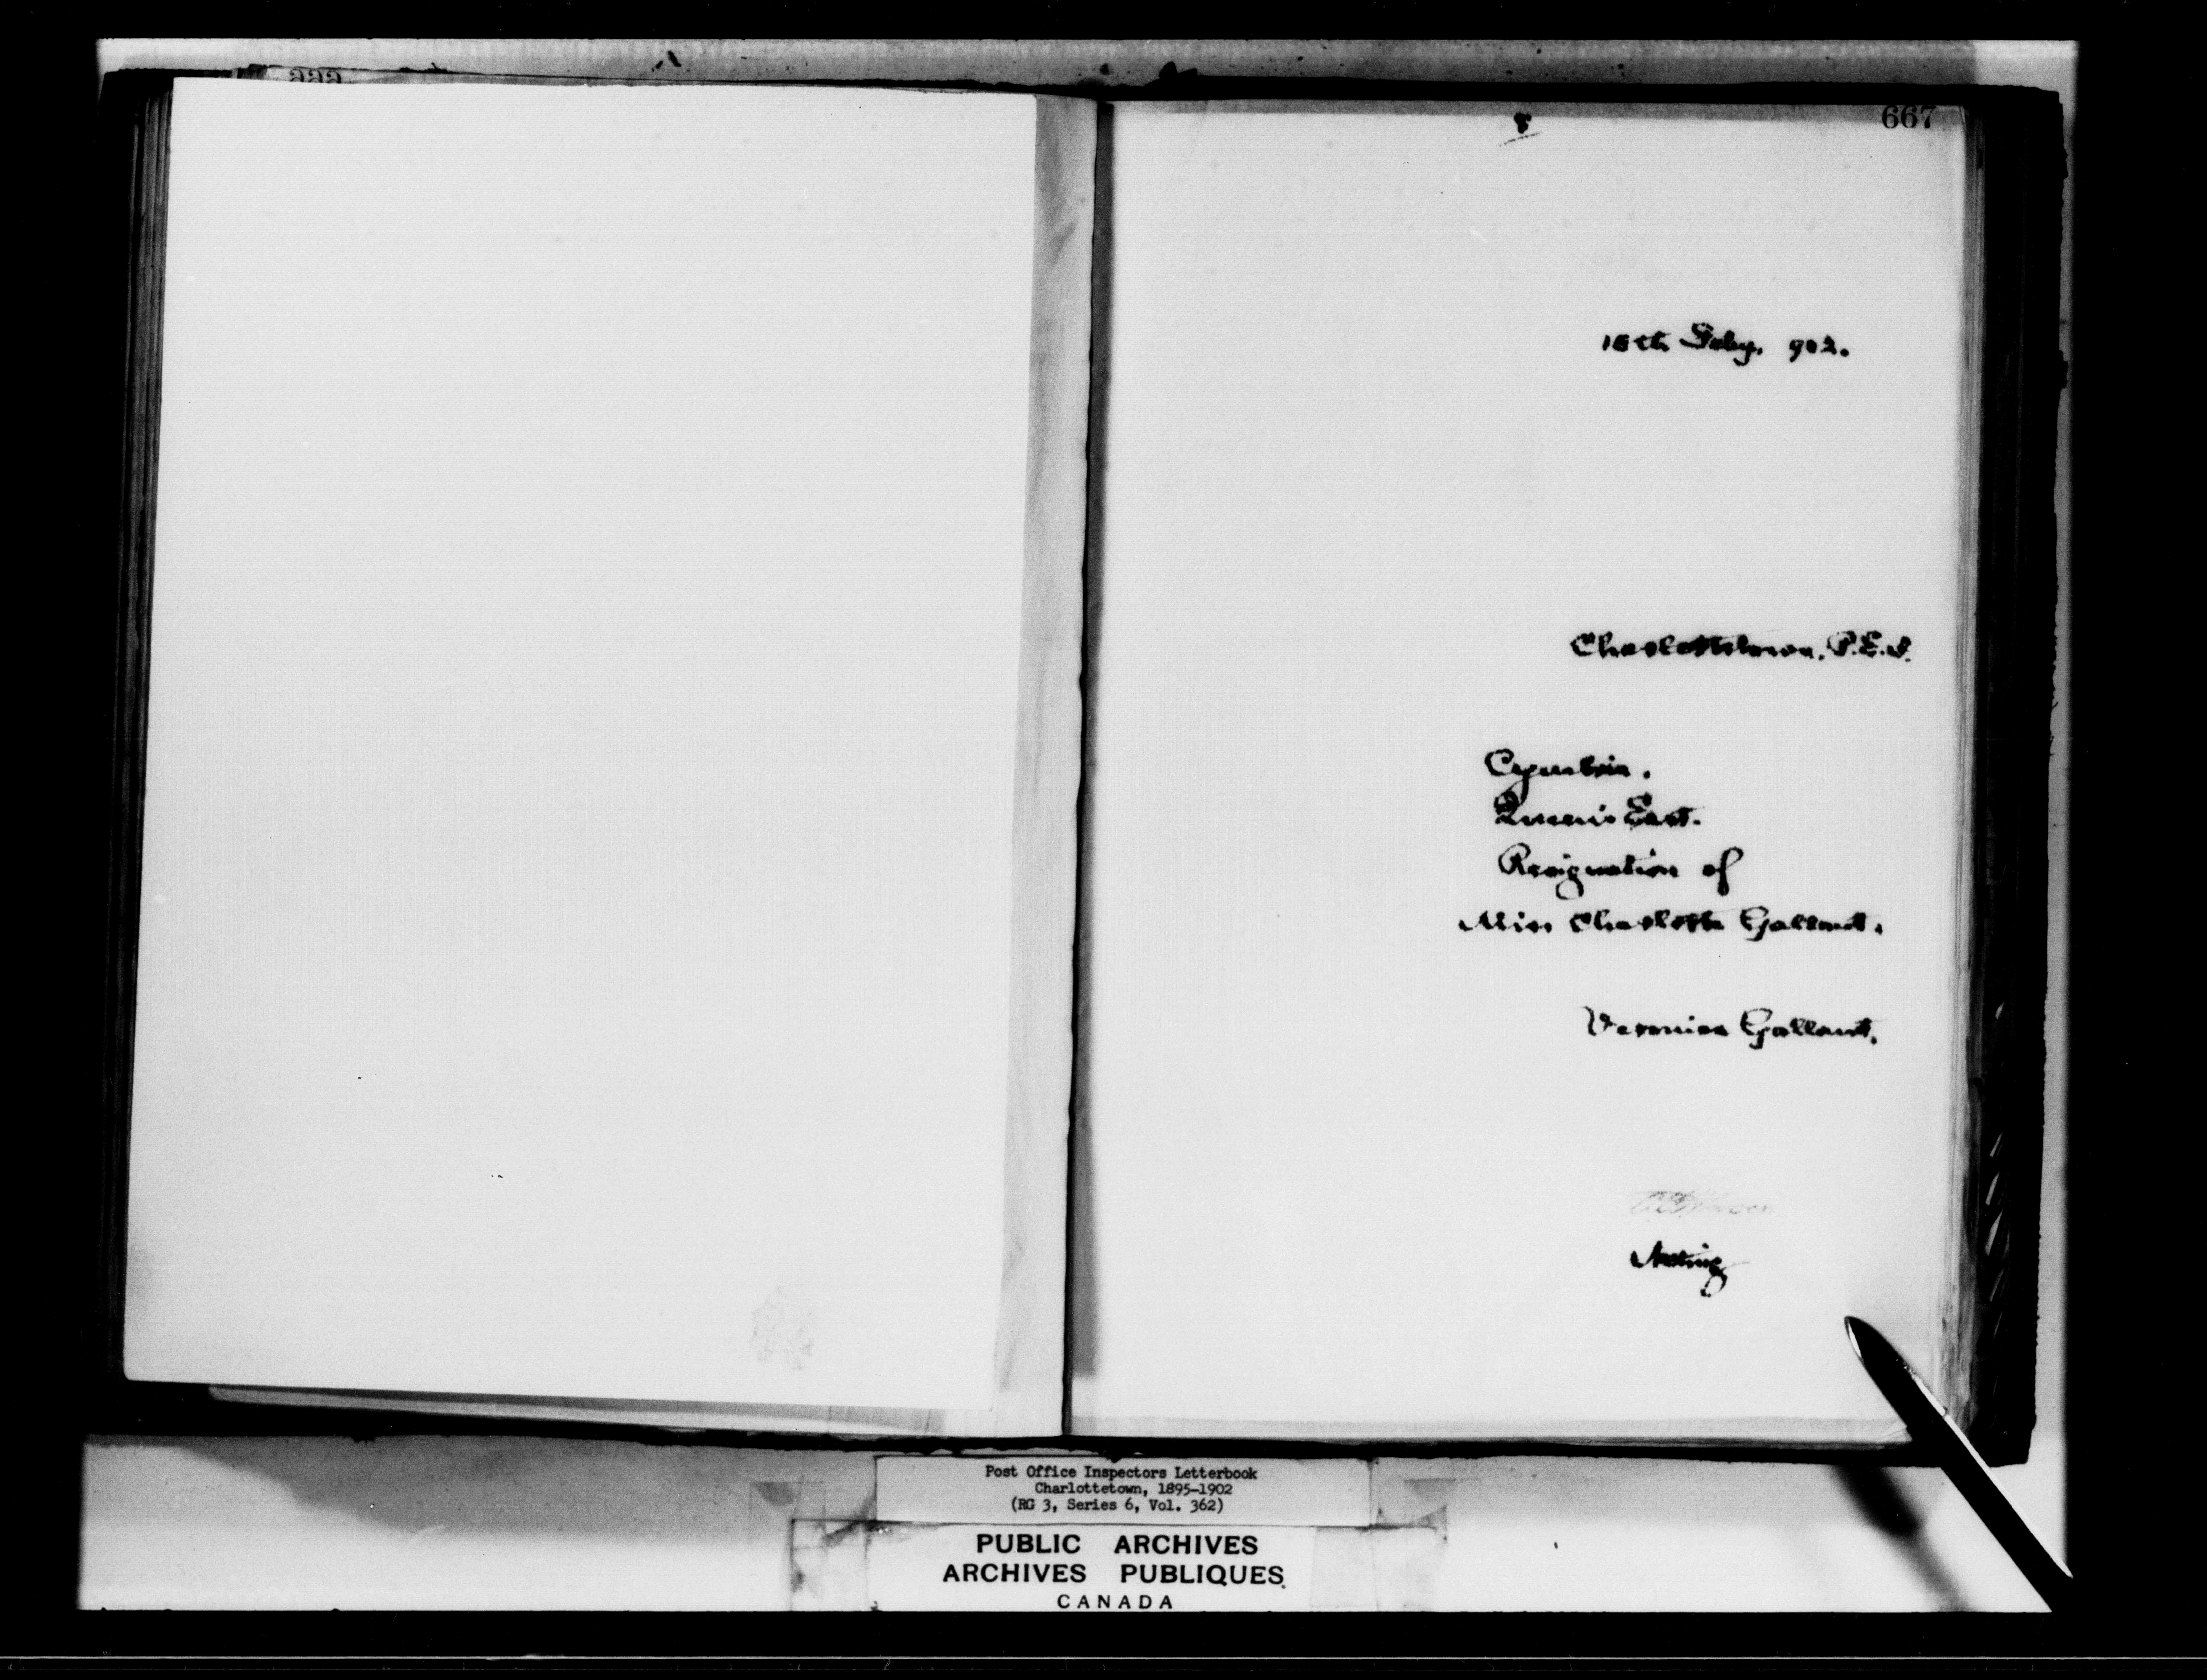 667
15th Feby. 902.
Charlottetown, P.E.I.
Cymbria.
Queen's East.
Resignation of
Miss Charlotte Gallant.
Veronica Gallant.
Acting
Post Office Inspectors Letterbook
Charlottetown, 1895-1902
(RG 3, Series 6, Vol. 362)
PUBLIC ARCHIVES
ARCHIVES PUBLIQUES
CANADA